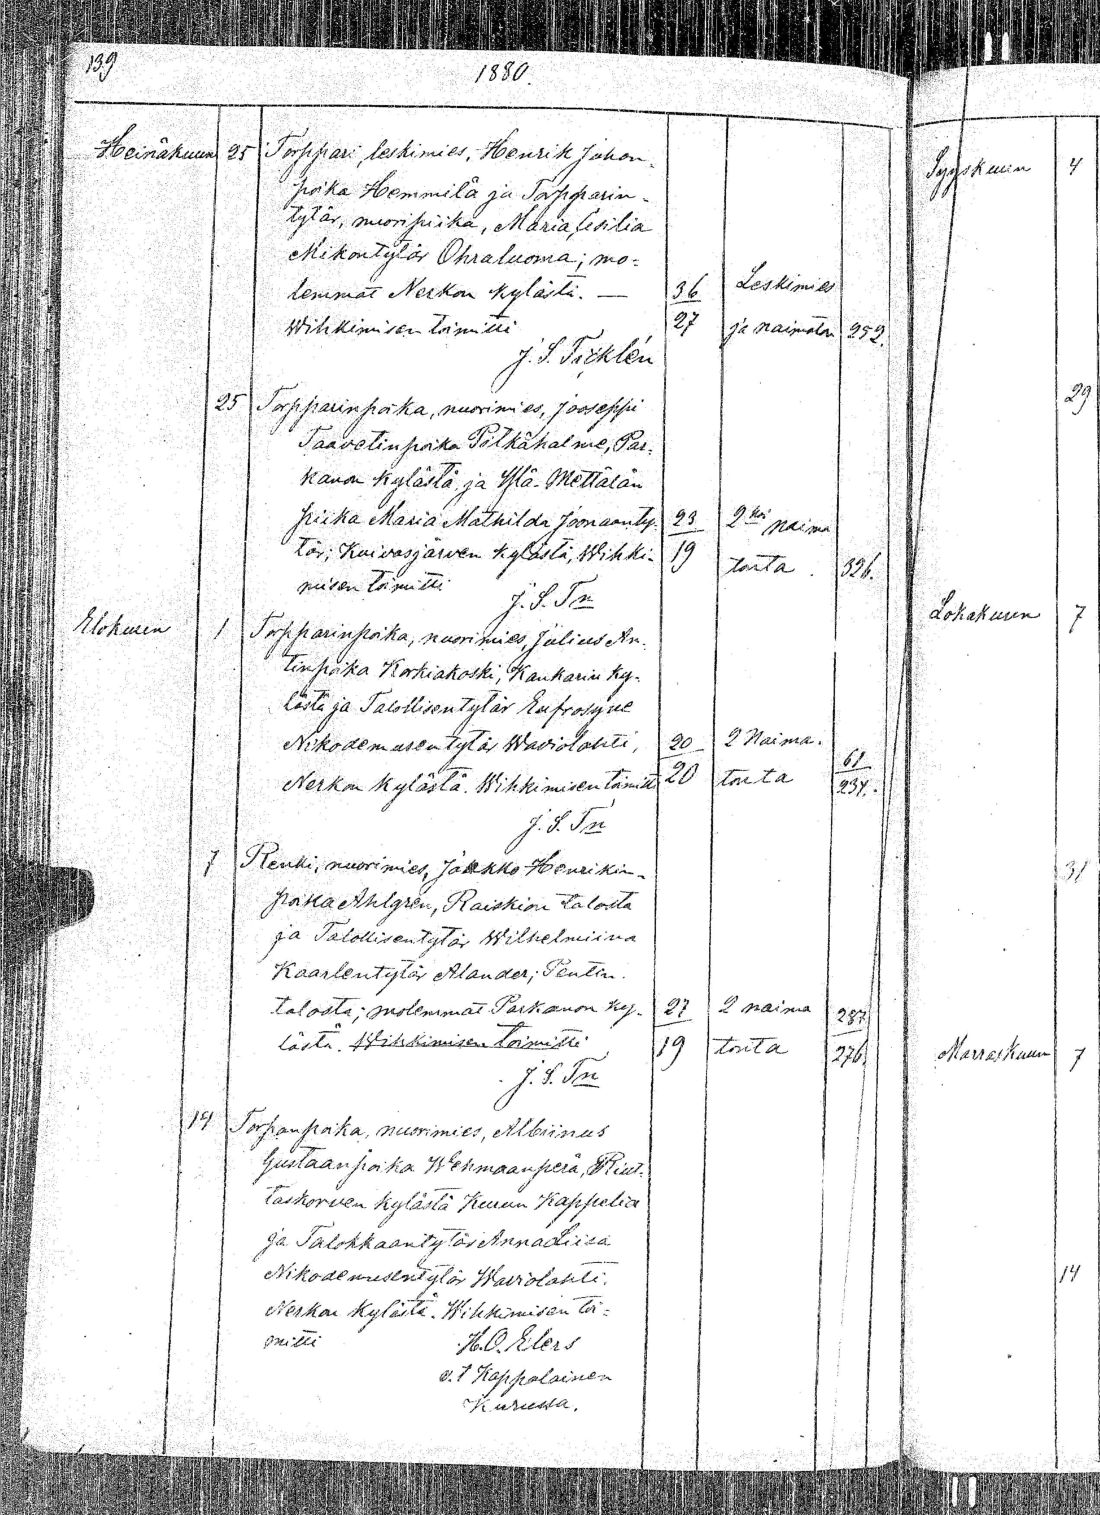 139
1880.
Heinäkuun 25 Torppari, leskimies, Henrik Juhon-
poika Hemmilä ja Torpparin-
tytär, nuoripiika, Maria Cesilia
Mikontytär Ohraluoma; mo-
lemmat Nerkon kylästä. — 36 Leskimies
Wihkimisen toimitti 27 ja naimaton 252.
J. S. Ticklén
25 Torpparinpoika, nuorimies, Jooseppi
Taavetinpoika Pitkähalme, Par-
kanon kylästä ja Ylä-Mettälän
piika Maria Mathilda Joonaanty- 23 2ksi naima
tär; Kuivasjärven kylästä, Wihki- 19 tonta. 326.
misen toimitti
J. S. Tn
Elokuun 1 Torpparinpoika, nuorimies, Julius An-
tinpoika Korkiakoski, Kankarin ky-
lästä ja Talollisentytär Eufrosyne
Nikodemusentytär Waviolahti, 20 2 Naima-
Nerkon kylästä. Wihkimisen toimitti 20 tonta 61
234.
J. S. Tn
7 Renki, nuorimies, Jaakko Henrikin-
poika Ahlgrén, Raiskion talosta
ja Talollisentytär Wilhelmiina
Kaarlentytär Alander; Pentin
talosta; molemmat Parkanon ky- 27 2 naima 287
lästä. Wihkimisen toimitti 19 tonta 276
J. S. Tn
14 Torpanpoika, nuorimies, Albiinus
Gustaanpoika Wehmaanperä, Riut-
taskorven kylästä Kurun Kappelia
ja Talokkaantytär Anna Liisa
Nikodemusentytär Waviolahti.
Nerkon kylästä. Wihkimisen toi-
mitti H. O. Elers
v. t Kappalainen
Kurussa.
Syyskuun 4
29
Lokakuun 7
31
Marraskuun 7
14